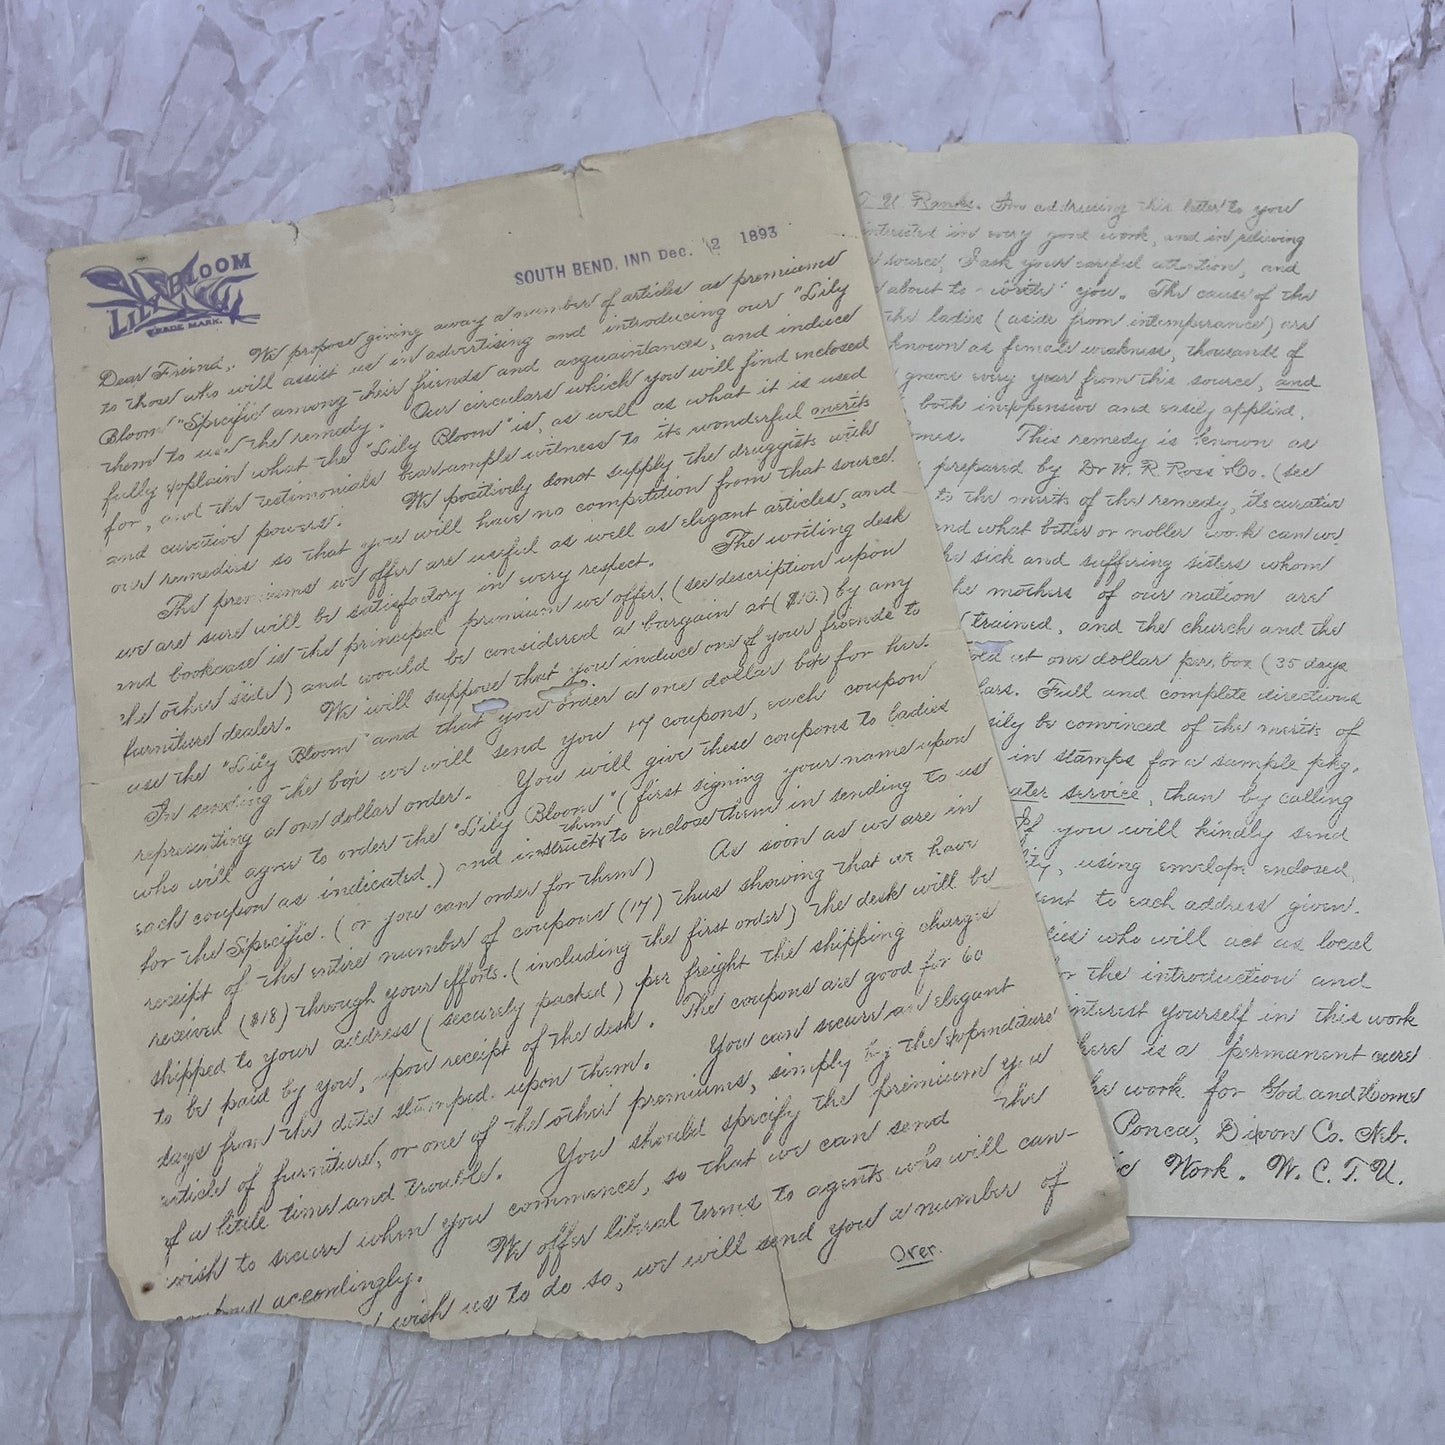 LILY BLOOM
TRADE MARK.
SOUTH BEND, IND Dec. 12 1893
Dear Friend,. We propose giving away a number of articles as premiums
to those who will assist us in advertising and introducing our "Lily
Bloom" Specific among their friends and acquaintances, and induce
them to use the remedy. Our circulars which you will find enclosed
fully explain what the "Lily Bloom" is, as well as what it is used
for, and the testimonials bear ample witness to its wonderful merits
and curative powers. We positively do not supply the druggists with
our remedies so that you will have no competition from that source.
The premiums we offer are useful as well as elegant articles, and
we are sure will be satisfactory in every respect. The writing desk
and bookcase is the principal premium we offer, (see description upon
the other side) and would be considered a bargain at ($10.) by any
furniture dealer. We will suppose that you induce one of your friends to
use the "Lily Bloom" and that you order a one dollar box for her.
In sending the box we will send you 17 coupons, each coupon
representing a one dollar order. You will give these coupons to ladies
who will agree to order the "Lily Bloom" (first signing your name upon
each coupon as indicated) and instruct them to enclose them in sending to us
for the Specific. (or you can order for them) As soon as we are in
receipt of the entire number of coupons (17) thus showing that we have
received ($18) through your efforts. (including the first order) the desk will be
shipped to your address (securely packed) per freight the shipping charges
to be paid by you, upon receipt of the desk. The coupons are good for 60
days from the date stamped upon them. You can secure an elegant
article of furniture, or one of the other premiums, simply by the expenditure
of a little time and trouble. You should specify the premium you
wish to secure when you commence, so that we can send the
accordingly. We offer liberal terms to agents who will can-
wish us to do so, we will send you a number of
Over.
T U Ranks. In addressing this letter to you
interested in every good work, and in relieving
source, I ask your careful attention, and
about to write you. The cause of the
the ladies (aside from intemperance) are
known as female weakness, thousands of
graves every year from this source, and
both inexpensive and easily applied.
This remedy is known as
prepared by Dr W. R. Ross & Co. (see
to the merits of the remedy, its curative
and what better or nobler work can we
the sick and suffering sisters whom
the mothers of our nation are
trained, and the church and the
sold at one dollar per box (35 days
Full and complete directions
easily be convinced of the merits of
in stamps for a sample pkg.
service, than by calling
If you will kindly send
using envelope enclosed,
sent to each address given.
ladies who will act as local
for the introduction and
interest yourself in this work
here is a permanent cure
the work for God and Home
Ponca, Dixon Co. Neb.
Work. W. C. T. U.